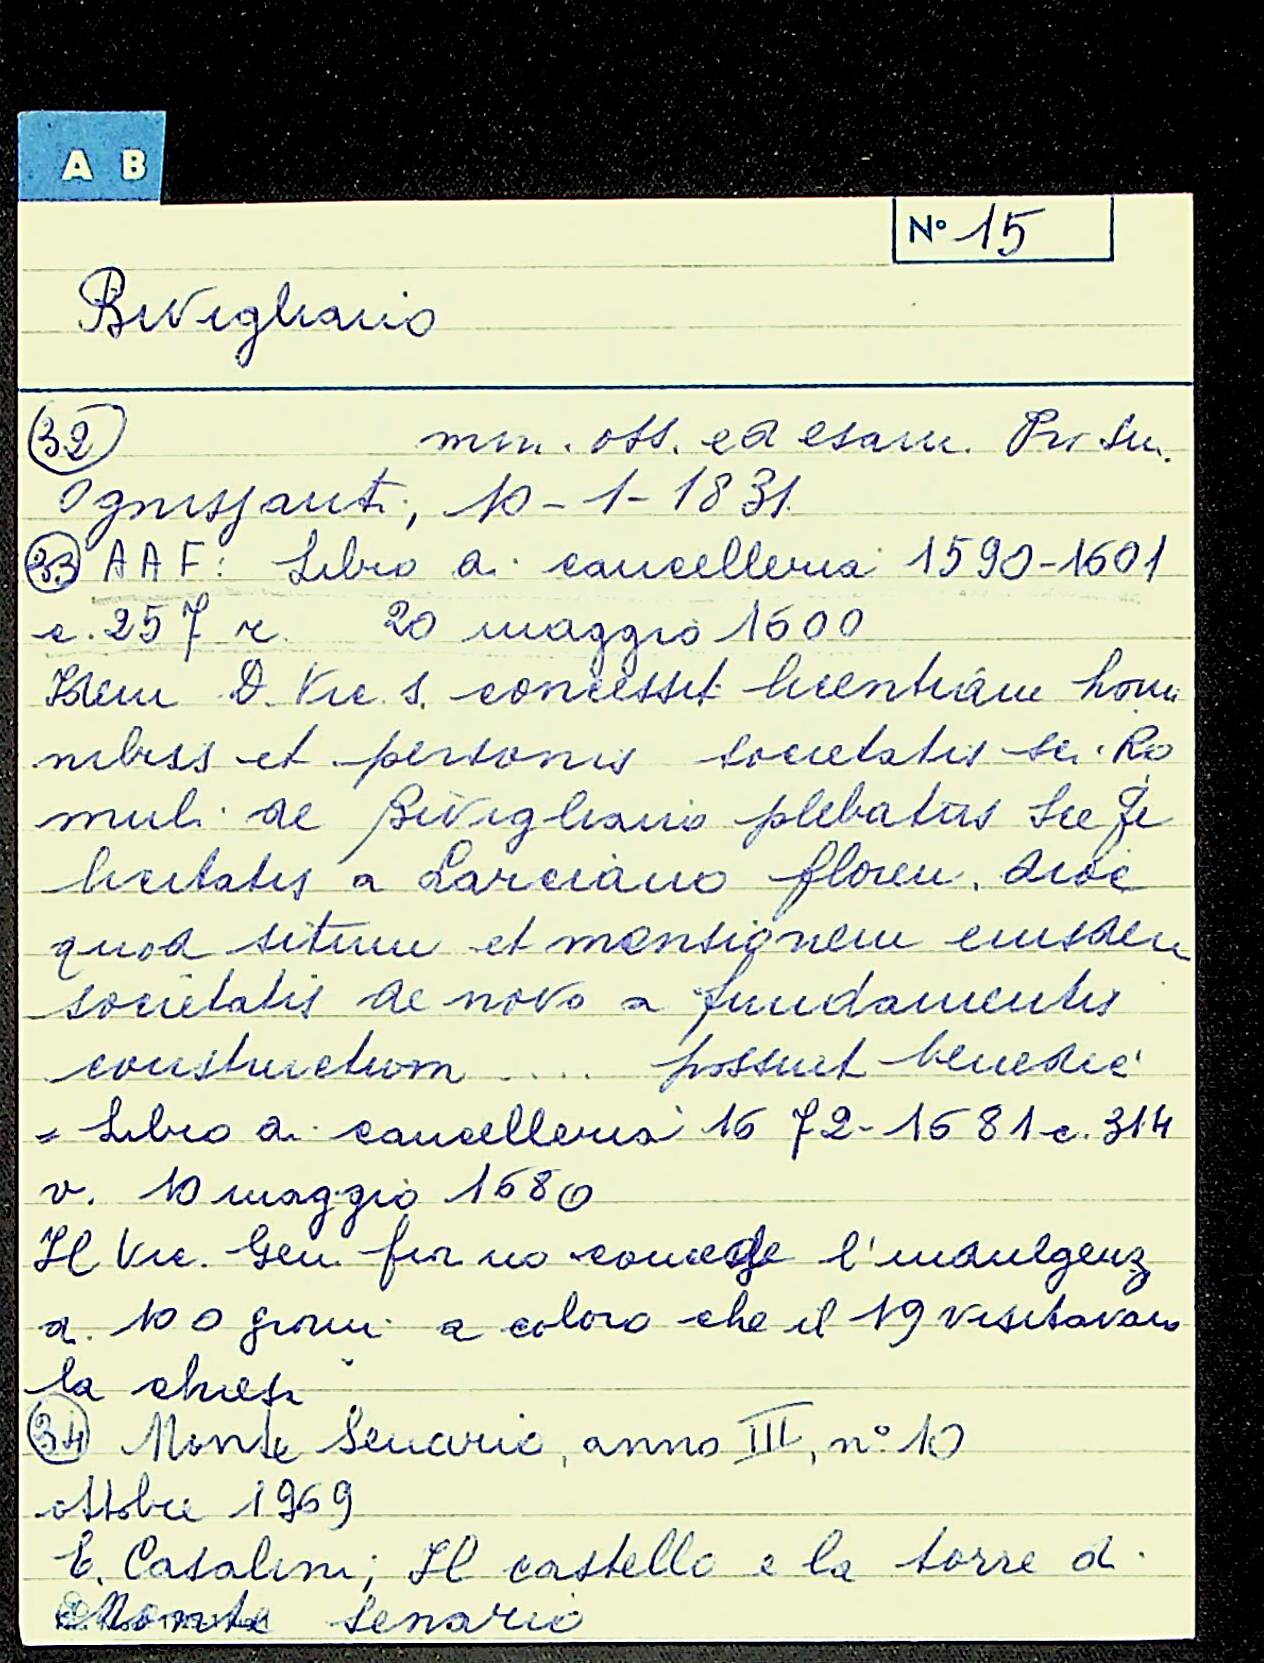 A B
N° 15
Bivigliano
32 min. oss. ed esam. Pr. Su.
Ognissanti, 10-1-1831.
33 AAF: Libro di cancelleria 1590-1601
c. 257 r. 20 maggio 1600
Idem D. Vic. s. concessit licentiam homi
nibus et personis societatis sci. Ro
muli de Bivigliano plebatus See Fe
licitatis a Larciano floren. dioc
quod situm et mansionem eiusdem
societatis de novo a fundamentis
constructiom .... possint benedic
= Libro di cancelleria 1672-1681 c. 314
v. 10 maggio 1680
Il Vic. Gen. fior.no concede l'indulgenz
di 100 giorni a coloro che il 19 visitavano
la chiesa
34 Monte Senario, anno III, n° 10
ottobre 1969
E. Casalini; Il castello e la torre di
Monte Senario